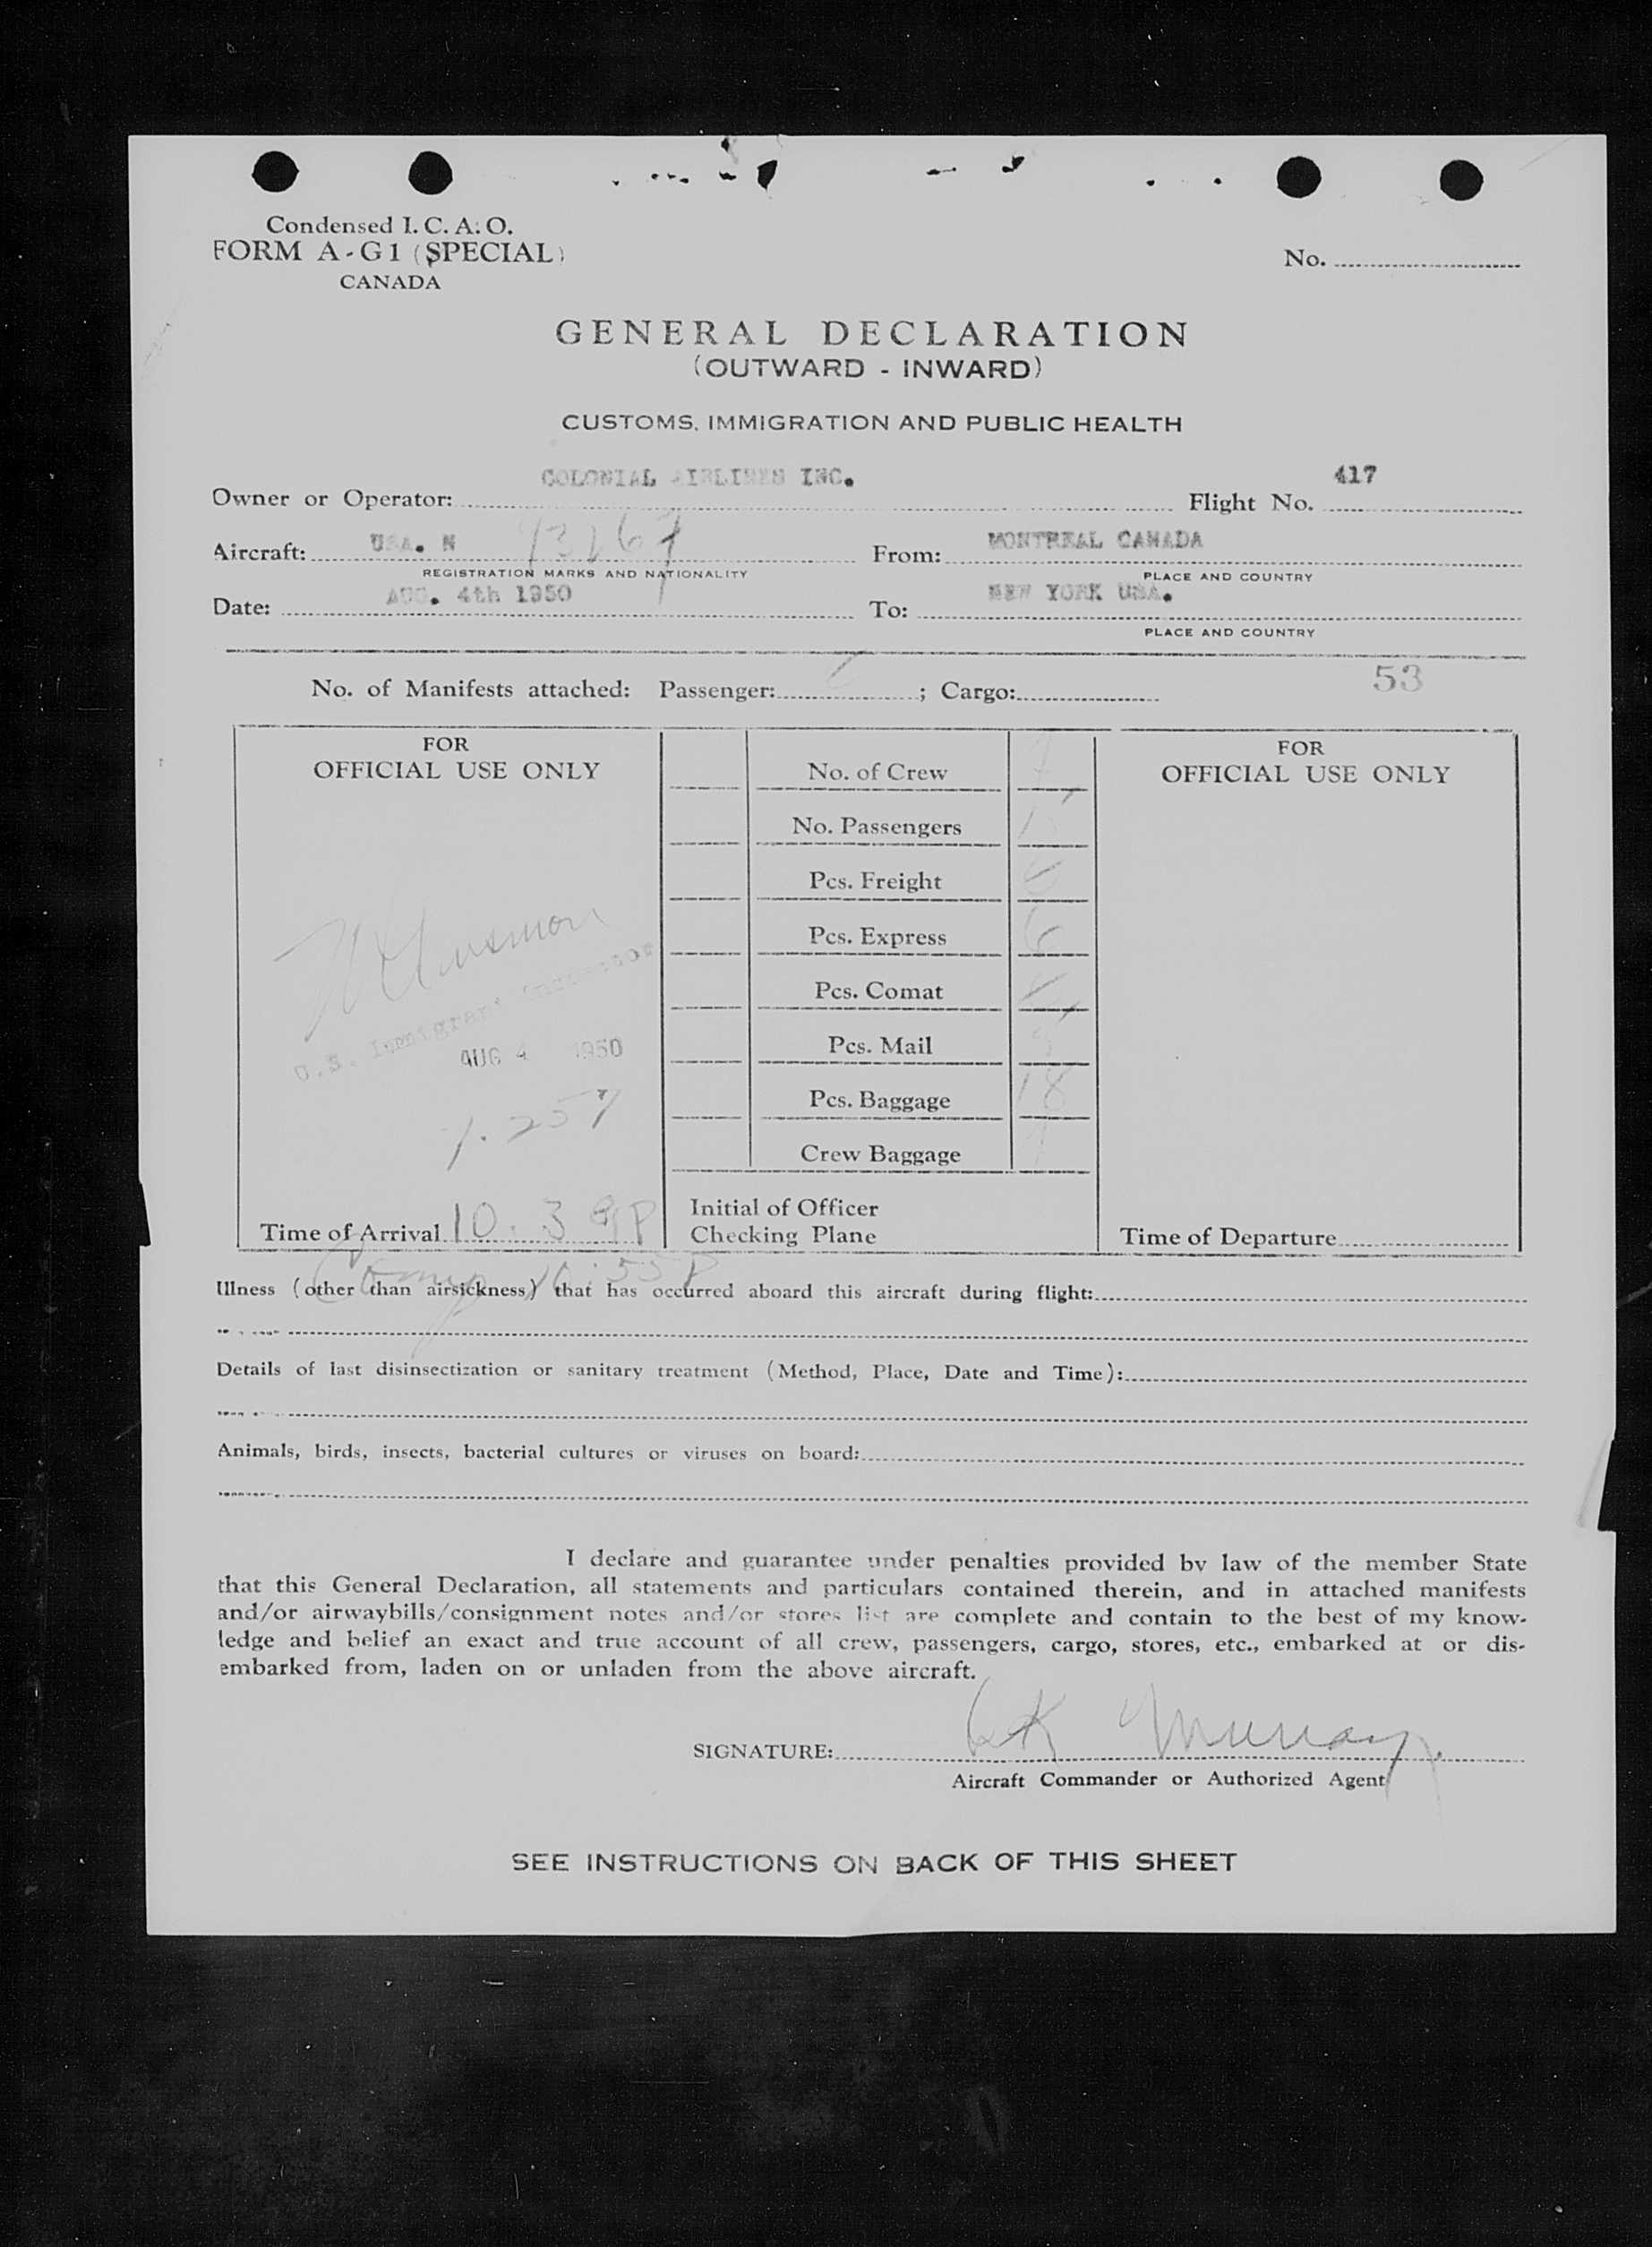 Condensed I. C. A. O.
FORM A-G1 (SPECIAL)
CANADA
No.
GENERAL DECLARATION
(OUTWARD - INWARD)
CUSTOMS, IMMIGRATION AND PUBLIC HEALTH
Owner or Operator: COLONIAL AIRLINES INC. Flight No. 417
Aircraft: USA. N From: MONTREAL CANADA
REGISTRATION MARKS AND NATIONALITY PLACE AND COUNTRY
Date: AUG. 4th 1950 To: NEW YORK USA.
PLACE AND COUNTRY
53
No. of Manifests attached: Passenger: ; Cargo:
FOR
OFFICIAL USE ONLY
U.S. Immigrant Inspector
AUG 4 1950
Time of Arrival 10.39P
No. of Crew
No. Passengers
Pcs. Freight
Pcs. Express 6
Pcs. Comat
Pcs. Mail
Pcs. Baggage 18
Crew Baggage
Initial of Officer
Checking Plane
FOR
OFFICIAL USE ONLY
Time of Departure
Illness (other than airsickness) that has occurred aboard this aircraft during flight:
Details of last disinsectization or sanitary treatment (Method, Place, Date and Time):
Animals, birds, insects, bacterial cultures or viruses on board:
I declare and guarantee under penalties provided by law of the member State
that this General Declaration, all statements and particulars contained therein, and in attached manifests
and/or airwaybills/consignment notes and/or stores list are complete and contain to the best of my know-
ledge and belief an exact and true account of all crew, passengers, cargo, stores, etc., embarked at or dis-
embarked from, laden on or unladen from the above aircraft.
SIGNATURE: Murray
Aircraft Commander or Authorized Agent
SEE INSTRUCTIONS ON BACK OF THIS SHEET